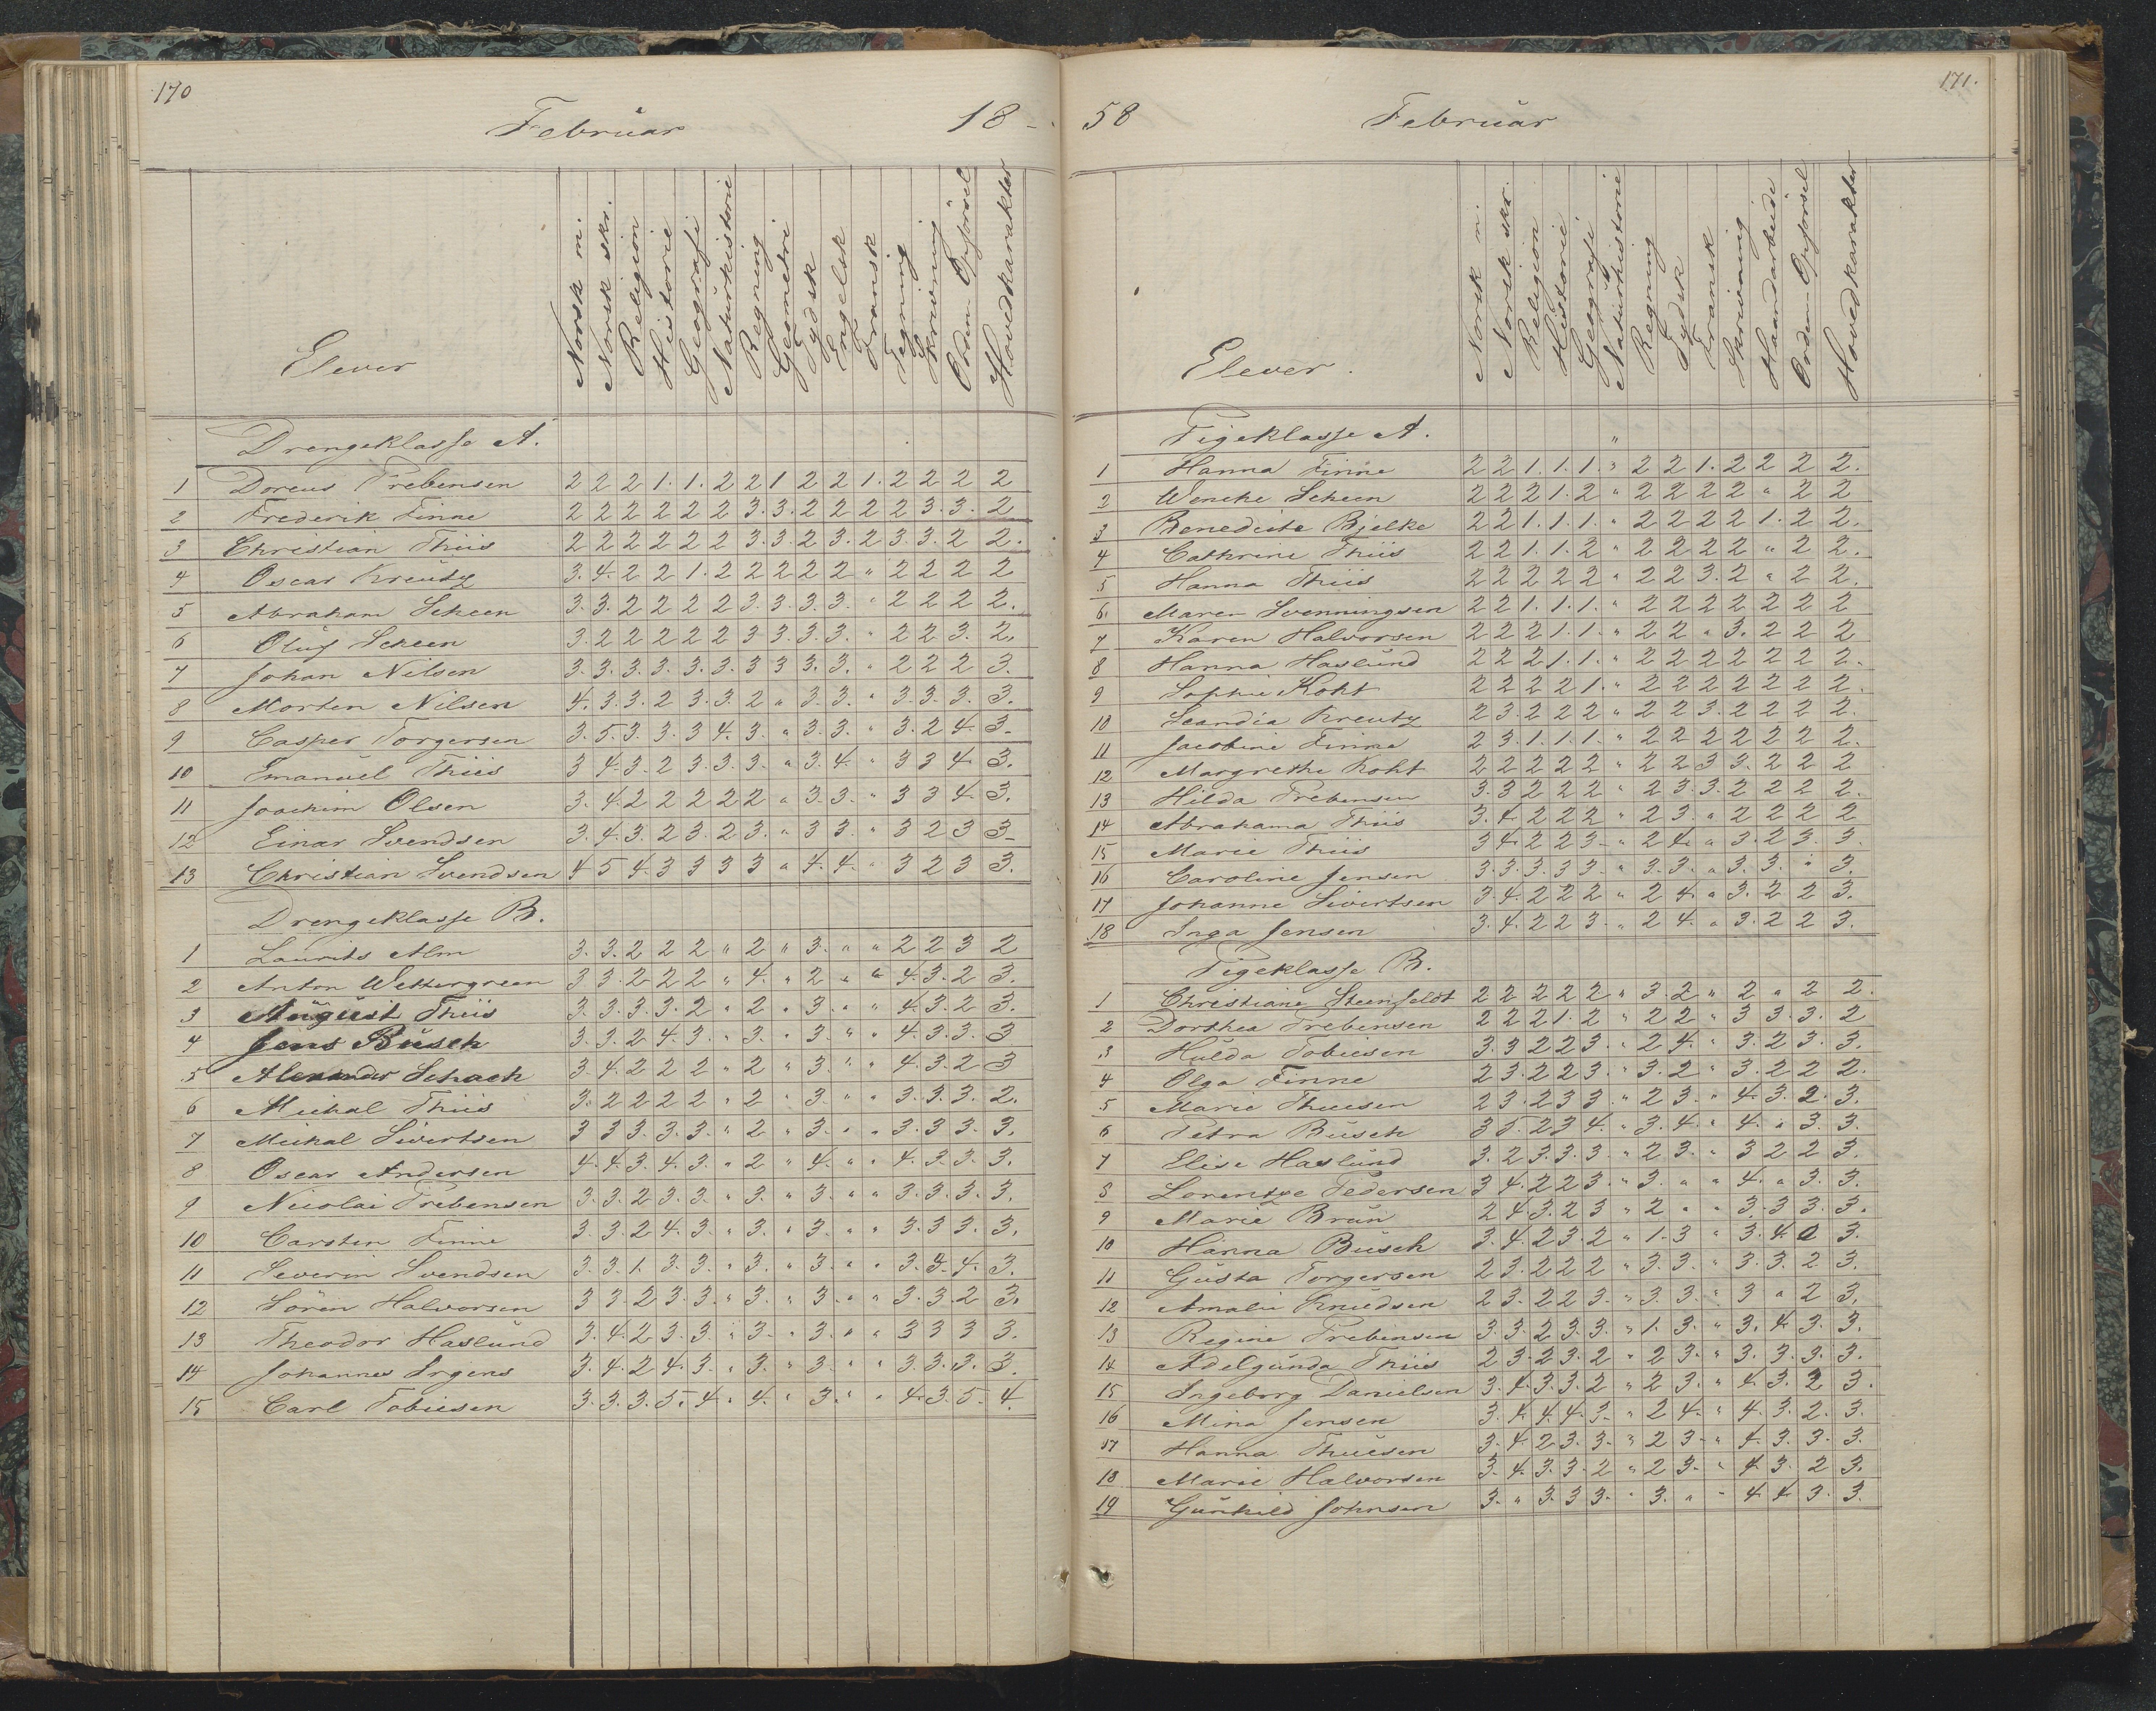 170
Februar 18-
Elever Norsk m. Norsk skr. Religion Historie Geografi Naturhistorie Regning Geometri Tydsk Engelsk Fransk Tegning Skrivning Orden Opförsel Hovedkarakter
Drengeklasse A.
1 Doreus Prebensen 2 2 2 1. 1. 2 2 1 2 2 1. 2 2 2 2
2 Frederik Finne 2 2 2 2 2 2 3. 3. 2 2 2 2 3. 3. 2
3 Christian Thiis 2 2 2 2 2 2 3. 3. 2 3. 2 3. 3. 2 2.
4 Oscar Kreutz 3. 4. 2 2 1. 2 2 2 2 2 " 2 2 2 2
5 Abraham Scheen 3. 3. 2 2 2 2 3. 3. 3. 3. " 2 2 2 2.
6 Oluf Scheen 3. 2 2 2 2 2 3 3. 3. 3. " 2 2 3. 2.
7 Johan Nilsen 3. 3. 3. 3. 3. 3. 3 3 3. 3. " 2 2 2 3.
8 Morten Nilsen 4. 3. 3. 2 3. 3. 2 " 3. 3. " 3. 3. 3. 3.
9 Casper Torgersen 3. 5. 3. 3. 3 4. 3. " 3. 3. " 3. 2 4. 3.
10 Emanuel Thiis 3 4. 3. 2 3. 3. 3. " 3. 4. " 3 3 4 3.
11 Joachim Olsen 3. 4. 2 2 2 2 2 " 3. 3. " 3 3 4. 3.
12 Einar Svendsen 3. 4. 3. 2 3. 2 3. " 3 3. " 3 2 3 3
13 Christian Svendsen 4 5 4. 3 3 3 3 " 4. 4. " 3 2 3 3.
Drengeklasse B.
1 Laurits Alm 3. 3. 2 2 2 " 2 " 3. " " 2 2 3 2
2 Anton Wettergreen 3 3. 2 2 2 " 4. " 2 " " 4. 3. 2 3.
3 August Thiis 3. 3. 3. 3. 2 " 2 " 3. " " 4. 3. 2 3.
4 Jens Busch 3. 3. 2 4. 3. " 3. " 3. " " 4. 3. 3. 3
5 Alexander Schach 3. 4. 2 2 2 " 2 " 3. " " 4. 3. 2 3
6 Mickal Thiis 3. 2 2 2 2 " 2 " 3. " " 3. 3. 3. 2.
7 Mickal Sivertsen 3 3 3. 3. 3. " 2 " 3. " " 3. 3 3. 3.
8 Oscar Andersen 4. 4. 3. 4. 3. " 2 " 4. " " 4. 3. 3. 3.
9 Nicolai Prebensen 3. 3. 2 3. 3. " 3. " 3. " " 3. 3. 3. 3.
10 Carsten Finne 3. 3. 2 4. 3 " 3. " 3. " " 3. 3 3. 3.
11 Severin Svendsen 3. 3. 1. 3. 3. " 3. " 3. " " 3. 3. 4. 3.
12 Sören Halvorsen 3 3. 2 3. 3. " 3. " 3. " " 3. 3. 2 3.
13 Theodor Haslund 3. 4. 2 3. 3. " 3. " 3. " " 3 3 3 3.
14 Johannes Irgens 3. 4. 2 4. 3. " 3. " 3. " " 3. 3. 3. 3.
15 Carl Tobiesen 3. 3. 3. 5. 4. " 4. " 3. " " 4. 3. 5. 4.
171.
58 Februar
Elever. Norsk m. Norsk skr. Religion Historie Geografi Naturhistorie Regning Tydsk Fransk Skrivning Haandarbeide Orden Opförsel Hovedkarakter
Pigeklasse A. "
1 Hanna Finne 2 2 1. 1. 1. " 2 2 1. 2 2 2 2.
2 Wencke Scheen 2 2 2 1. 2 " 2 2 2 2 " 2 2
3 Benedicte Bjelke 2 2 1. 1. 1. " 2 2 2 2 1. 2 2.
4 Cathrine Thiis 2 2 1. 1. 2 " 2 2 2 2 " 2 2.
5 Hanna Thiis 2 2 2 2 2 " 2 2 3. 2 " 2 2.
6. Maren Svenningsen 2 2 1. 1. 1. " 2 2 2 2 2 2 2
7 Karen Halvorsen 2 2 2 1. 1. " 2 2 " 3. 2 2 2
8 Hanna Haslund 2 2 2 1. 1. " 2 2 2 2 2 2 2.
9 Sophie Koht 2 2 2 2 1. " 2 2 2 2 2 2 2.
10 Scandia Kreutz 2 3. 2 2 2 " 2 2 3. 2 2 2 2.
11 Jacobine Finne 2 3. 1. 1. 1. " 2 2 2 2 2 2 2.
12 Margrethe Koht 2 2 2 2 2 " 2 2 3 3. 2 2 2
13 Hilda Prebensen 3. 3 2 2 2 " 2 3. 3. 2 2 2 2.
14 Abrahama Thiis 3. 4. 2 2 2 " 2 3. " 2 2 2 2
15 Marie Thiis 3 4. 2 2 3. " 2 4. " 3. 2 3. 3.
16 Caroline Jensen 3. 3. 3. 3 3. " 3. 3. " 3. 3. " 3.
17 Johanne Sivertsen 3. 4. 2 2 2 " 2 4. " 3. 2 2 3.
18 Inga Jensen 3. 4. 2 2 3. " 2 4. " 3. 2 2 3.
Pigeklasse B.
1 Christiane Steenfeldt 2 2 2 2 2 " 3. 2 " 2 " 2 2.
2 Dorthea Prebensen 2 2 2 1. 2 " 2 2 " 3 3. 3. 2
3 Hulda Tobiesen 3. 3 2 2 3 " 2 4. " 3. 2 3. 3.
4 Olga Finne 2 3. 2 2 3. " 3. 2 " 3. 2 2 2.
5 Marie Thuesen 2 3. 2 3 3. " 2 3. " 4. 3. 2. 3.
6 Petra Busch 3 5. 2 3 4. " 3. 4. " 4. " 3. 3.
7 Elise Haslund 3. 2 3. 3. 3. " 2 3. " 3 2 2 3.
8 Lorentze Pedersen 3 4. 2 2 3. " 3. " " 4. " 3. 3.
9 Marie Brun 2 4. 3. 2 3 " 2 " " 3. 3 3. 3.
10 Hanna Busch 3. 4. 2 3. 2 " 1. 3 " 3. 4. 3.
11 Gusta Torgersen 2 3. 2 2 2 " 3. 3. " 3. 3. 2 3.
12 Amalie Knudsen 2 3. 2 2 3. " 3. 3. " 3 " 2 3.
13 Regine Prebensen 3. 3. 2 3. 3. " 1. 3. " 3. 4. 3. 3.
14 Adelgunda Thiis 2 3. 2 3. 2 " 2 3. " 3. 3. 3. 3.
15 Ingeborg Danielsen 3. 4. 3. 3. 2 " 2 3. " 4. 3. 2 3.
16 Mina Jensen 3. 4. 4. 4. 3. " 2 4. " 4. 3. 2. 3.
17 Hanna Thuesen 3. 4. 2 3. 3. " 2 3. " 4. 3. 3. 3.
18 Marie Halvorsen 3. 4. 3. 3. 2 " 2 3. " 4. 3. 2 3.
19 Gunhild Johnsen 3. " 3. 3 3. " 3. " " 4. 4. 3. 3.